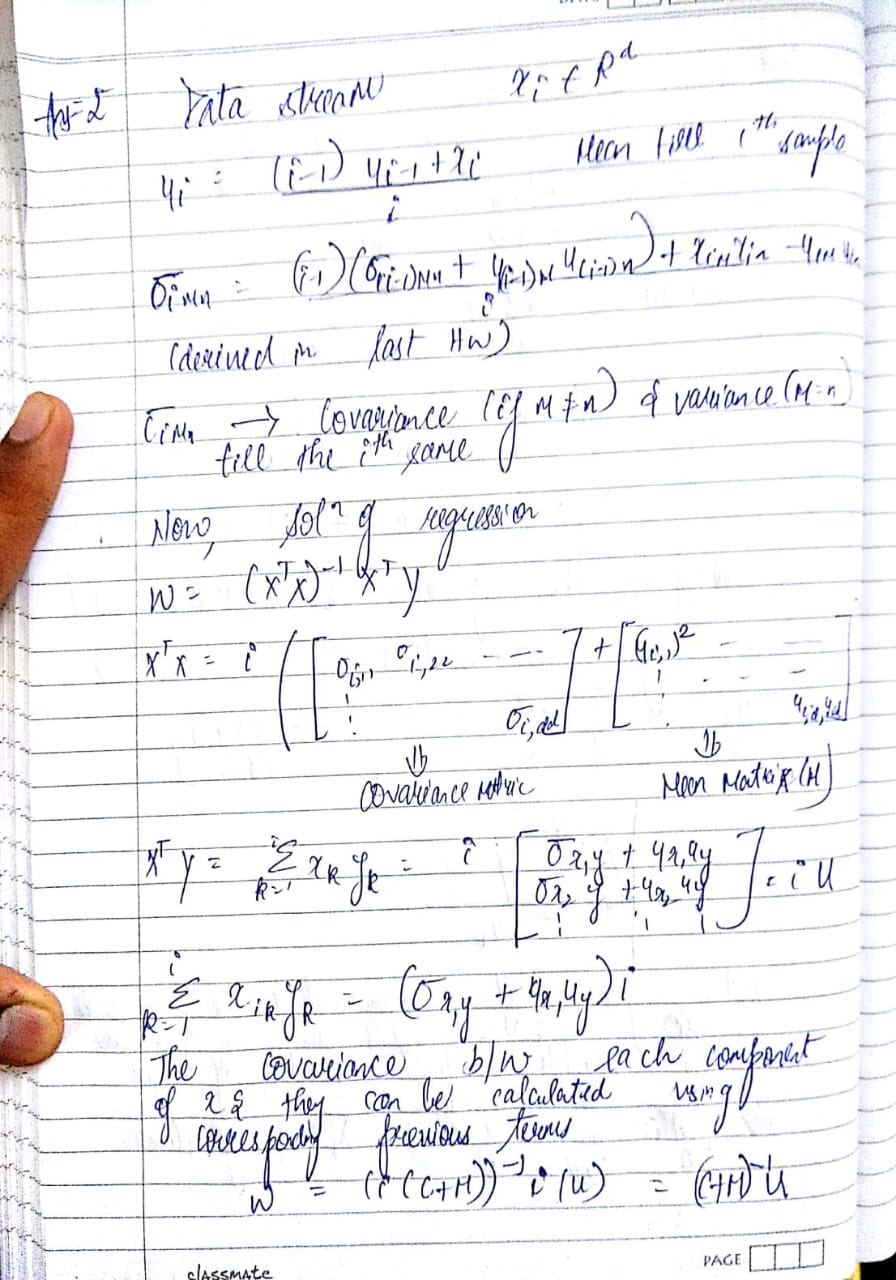 Ans-2 Data stream xi ∈ R^d
μi = ((i-1) μi-1 + xi) / i Mean till i^th sample
σimn = ((i-1)(σ(i-1)mn + μ(i-1)m μ(i-1)n) + xim xin) / i - μim μin
(derived in last HW)
σimn → Covariance (if m≠n) & variance (m=n)
till the i^th same
Now, sol^n of regression
W = (X^T X)^-1 X^T y
X^T X = i ( [ σi,11 σi,22 --- σi,dd ] + [ (μi,1)^2 -- -- μi,d μi,d ] )
⇓ ⇓
Covariance matric Mean Matrix (M)
X^T y = Σ_{k=1}^{i} xk yk = i [ σx1y + μx1 μy
σx2 y + μx2 μy ] = i U
Σ_{k=1}^{i} xik yk = (σx,y + μx, μy) i
The covariance b/w each component
of x & they can be calculated using
corresponding previous terms
W = (i (C+M))^-1 i (U) = (C+M)^-1 U
PAGE
classmate